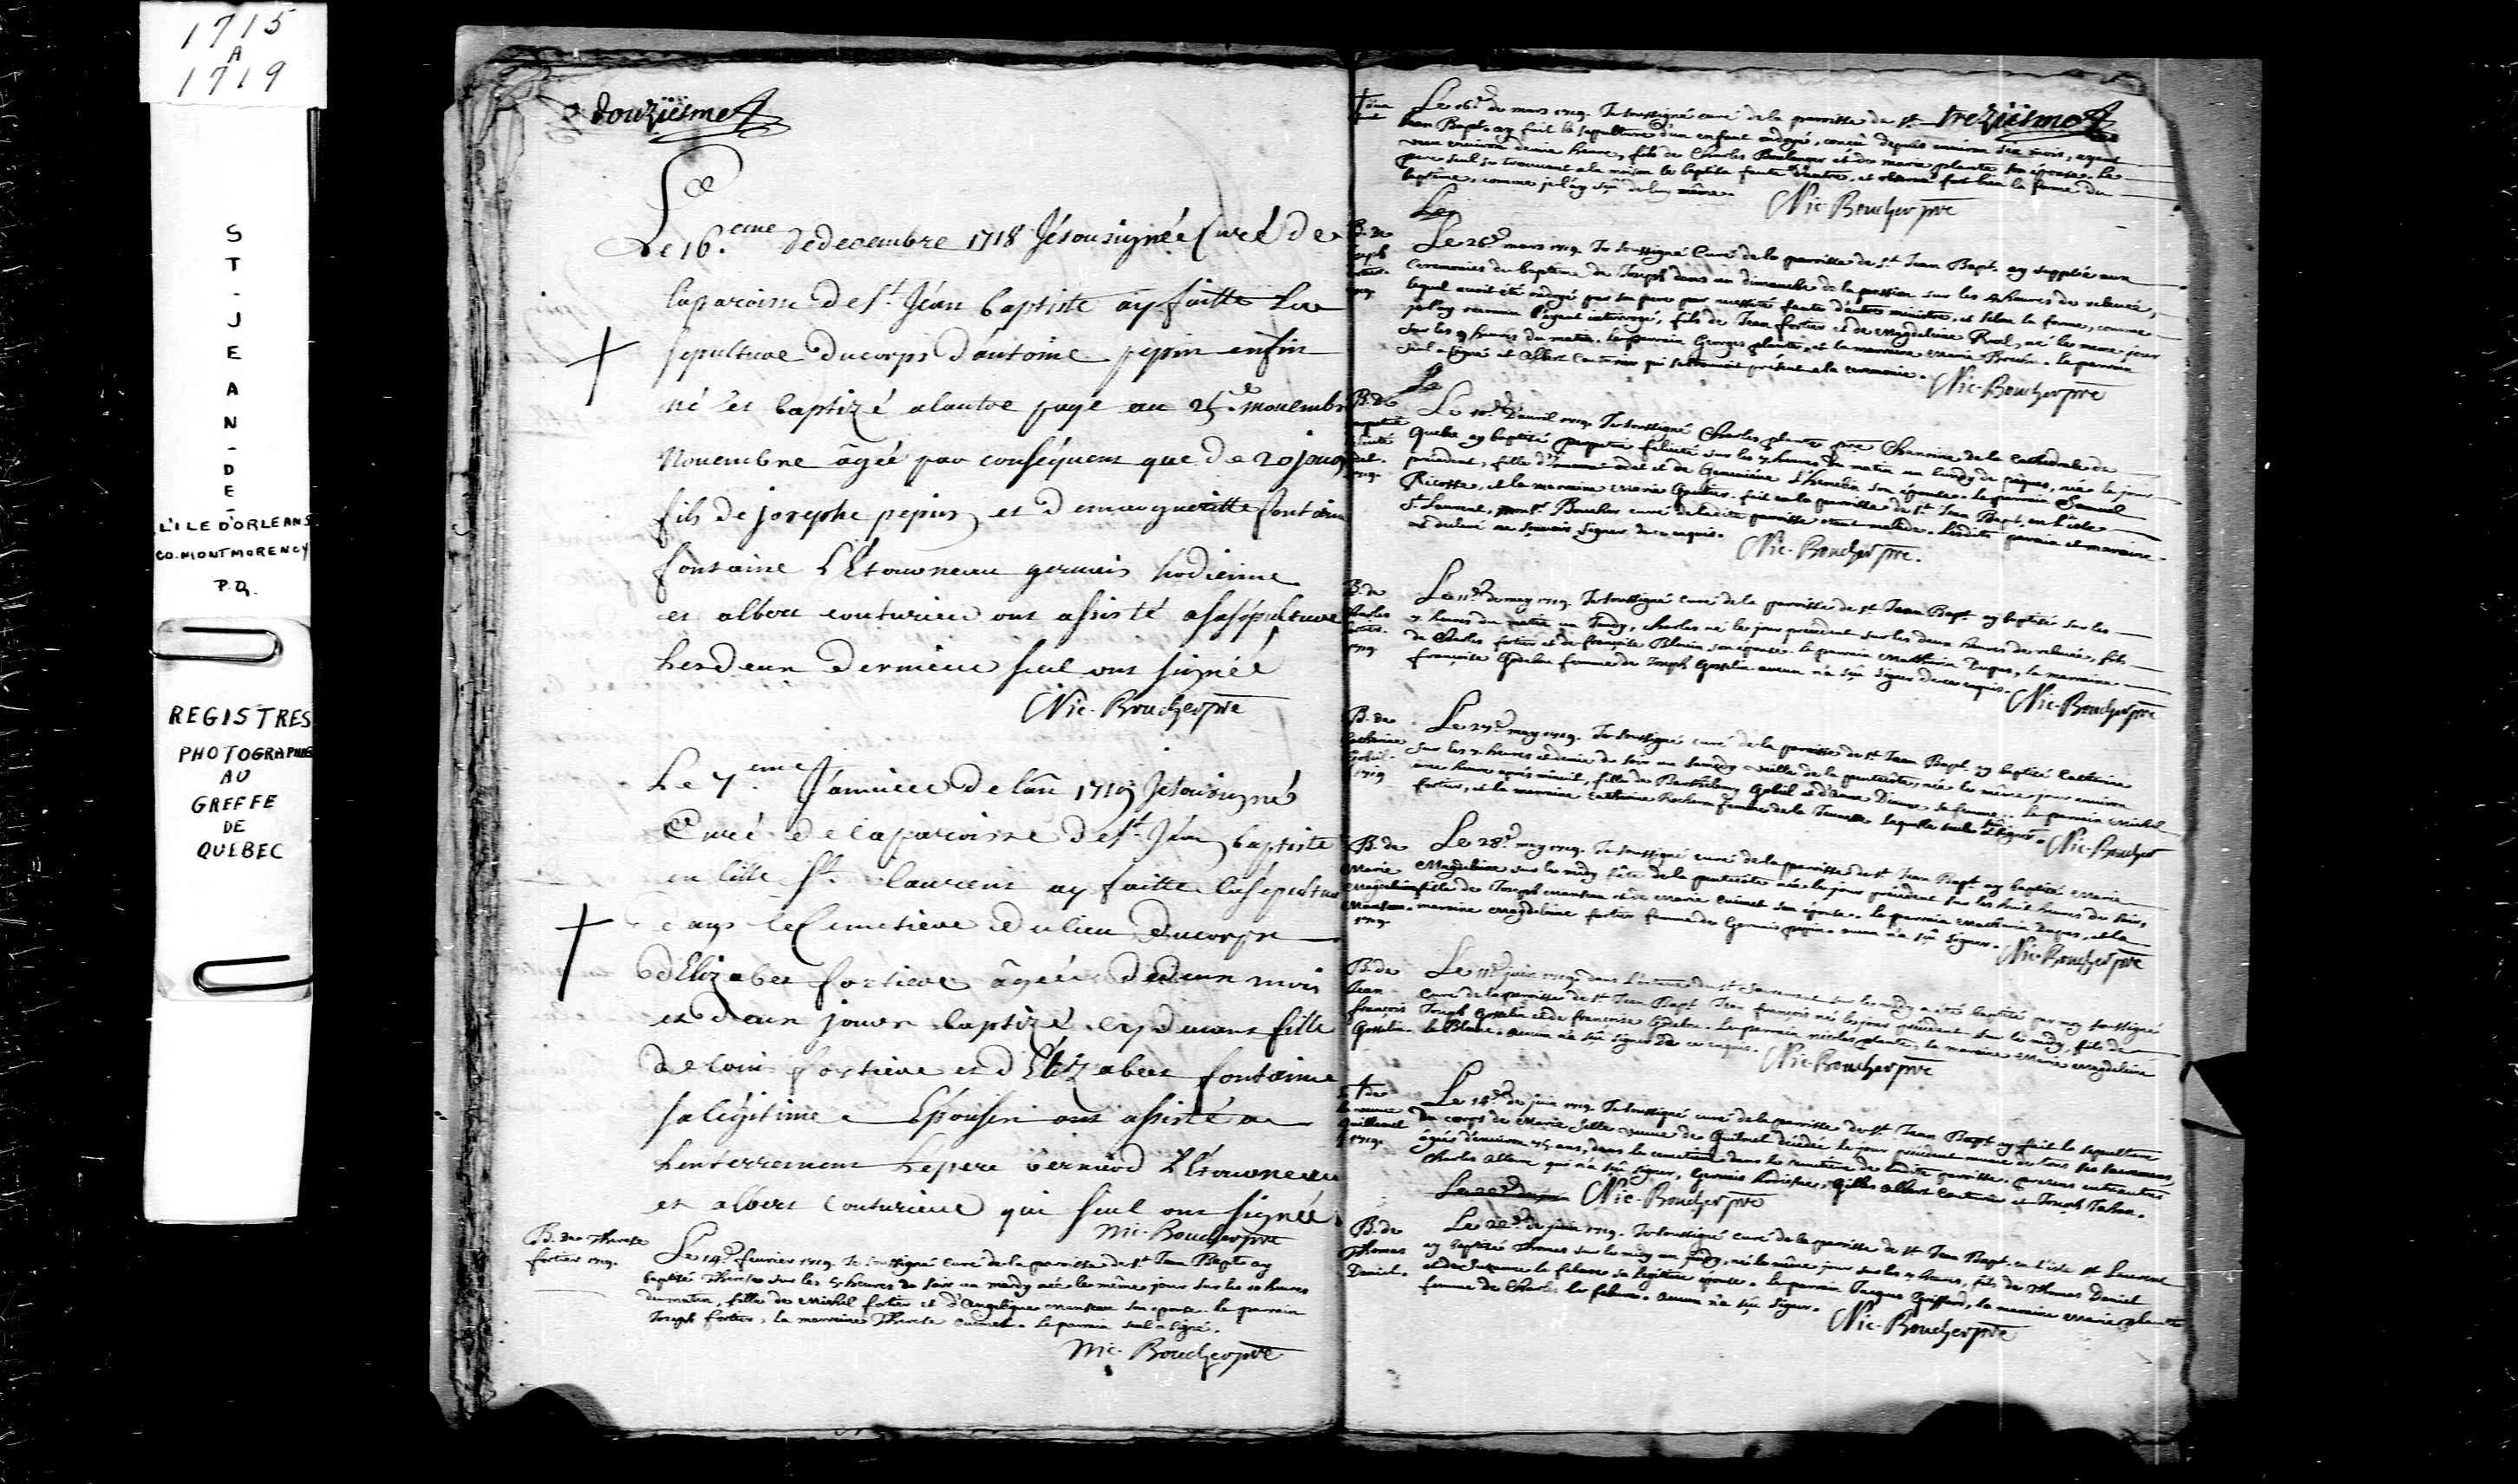 1715
A
1719
ST-JEAN-DE-
L'ILE D'ORLEANS
CO. MONTMORENCY
P.Q.
REGISTRES
PHOTOGRAPHIE
AU
GREFFE
DE
QUEBEC
douziesme
Le 16.eme de decembre 1718 Jésousignée Curé de
la paroisse de st. Jéan baptiste ay faitte La
sepulture du corps d'antoine pepin enfin
né et baptizé a lautre page au 25.e novembre
Novembre âgée par conséquent que de 20 jours
fils de josephe pepin et de margueritte fontaine
fontaine L'Étourneau germais hodienne
et albert couturier ont assisté a sa sépulture
les deux dernieur seul ont signée
Nic. Boucher pre
Le 7.eme Janvier de l'an 1719 Jésousigné
Curé de la paroisse de st. Jéan baptiste
en lisle st. laurent ay faitte la sepulture
dans le Cimetiere du lieu du corps
d'Elizabet fortiere âgée de deux mois
et deux jours baptizé cy devant fille
de louis fortiere et d'Elizabeet fontaine
sa légitime Épouse ont assisté a
lenterrement le pere bernard L'Étourneau
et albert Couturieur qui seul ont signée.
Nic. Boucher pre
B. de Therese
fortier 1719.
Le 14e. fevrier 1719. Je soussigné curé de la paroisse de st. Jean Bapt. ay
baptisé Therese sur les 5 heures du soir un mardy née le même jour sur les 10 heures
du matin, fille de Michel fortier et d'Angelique manseau son épouse. le parrain
Joseph fortier, la marreine Therese ouimet. le parrain seul a signé.
Nic. Boucher pre
treziesme
Le 16e. de mars 1719. Je soussigné curé de la paroisse de st.
Jean Bapt. ay fait la sepulture d'un enfant ondoyé, conçû depuis environ six mois, ayant
vecu environ demie heure, fils de Charles Boulanger et de marie plante son épouse. le
pere seul se trouvant a la maison le baptisa faute d'autre, et observa fort bien la forme du
baptême, comme je l'ay sçû de luy même.
Nic. Boucher pre
Le
B. de
Joseph
fortier.
1719
Le 26e. mars 1719. Je soussigné Curé de la paroisse de st. Jean Bapt. ay supplée aux
ceremonies du baptême de Joseph dans un dimanche de la passion sur les 4 heures de relevée,
lequel avoit été ondoyé par son pere par necessité faute d'autre ministre, et selon la forme, comme
je l'ay reconnu l'ayant interrogé, fils de Jean fortier et de Magdeleine Ruel, né le meme jour
sur les 9 heures du matin. le parrain Georges plante, et la marreine Marie Brochu. le parrain
seul a signé et Albert Couturier qui se trouvoit présent a la ceremonie.
Nic. Boucher pre
Le
Le 10e. d'avril 1719. Je soussigné Charles plante pre. Chanoine de la Cathedrale de
Quebec ay baptisé perpetue felicité sur les 7 heures du matin un lundy de pâques, née le jour
precedent, fille d' odet et de Geneviéve son épouse. le parrain Samuel
Ricosse, et la marreine Marie Gautier. fait en la paroisse de st. Jean Bapt. en l'isle
st. Laurent, monsr. Boucher curé de la dite paroisse etant malade. Lesdits parrain et marreine
ont declaré ne sçavoir signer de ce enquis.
Nic. Boucher pre.
B. de
Charles
fortier.
1719
Le 11e. de may 1719. Je soussigné curé de la paroisse de st. Jean Bapt. ay baptisé sur les
7 heures du matin un jeudy, Charles né le jour precedent sur les deux heures de relevée, fils
de Charles fortier et de françoise Blouin son épouse. le parrain Mathurin Dupas, la marreine
françoise Godebou femme de Joseph Gosselin. aucun n'a sçû signer de ce enquis.
Nic. Boucher pre
B. de
Catherine
Gobeil.
1719
Le 27e. may 1719. Je soussigné curé de la paroisse de st. Jean Bapt. ay baptisé Catherine
sur les 7 heures et demie du soir un samedy veille de la pentecôte, née le même jour environ
une heure aprés minuit, fille de Barthelemy Gobeil et d'anne Dionne sa femme. le parrain Michel
fortier, et la marreine Catherine Rocheron femme de la Jeunesse laquelle seule a signé.
Nic. Boucher
B. de
Marie
Magdeleine
Manseau.
1719.
Le 28e. may 1719. Je soussigné curé de la paroisse de st. Jean Bapt. ay baptisé Marie
Magdeleine sur le midy fête de la pentecôte née le jour précédent sur les huit heures du soir,
fille de Joseph Manseau et de Marie ouimet son épouse. le parrain Mathurin Dupas, et la
marreine Magdeleine fortier femme de Germais pepin. aucun n'a sçû signer.
Nic. Boucher pre
B. de
Jean
françois
Gosselin.
Le 11e. juin 1719. dans L'octave du st. Sacrement sur le midy a été baptisé par moy soussigné
Curé de la paroisse de st. Jean Bapt. Jean françois né le jour précédent sur le midy, fils de
Joseph Gosselin et de francoise Godebou. le parrain nicolas plante, la marreine Marie Magdeleine
le Blanc. aucun n'a sçû signer de ce enquis.
Nic. Boucher pre
† de
la veuve
Quillemel
1719.
Le 14e. de juin 1719. Je soussigné curé de la paroisse de st. Jean Bapt. ay fait la sepulture
du corps de Marie Selle veuve de Quilmel décédée le jour précédent munie de tous ses sacremens,
âgée d'environ 75 ans, dans le cimetiere de la dite paroisse. presens entr'autres
Charles Allaire qui n'a sçû signer, Germais hodiesne, Gilles Albert Couturier et Joseph Tahon.
Nic. Boucher pre
B. de
Thomas
Daniel.
Le 22e. de juin 1719. Je soussigné curé de la paroisse de st. Jean Bapt. en L'isle st. Laurent
ay baptisé Thomas sur le midy un jeudy, né le même jour sur les 7 heures, fils de Thomas Daniel
et de Suzanne le febvre sa legitime épouse. le parrain Jacque Guiffard, la marreine Marie plante
femme de Charles le febvre. aucun n'a sçû signer.
Nic. Boucher pre